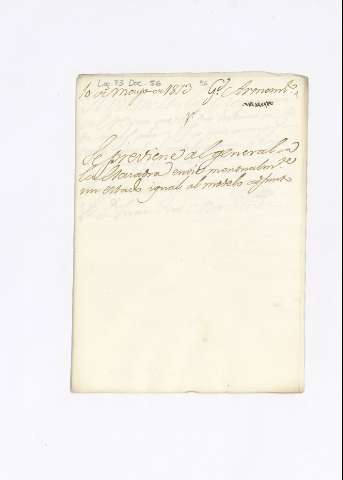 Leg. 33 Doc. 56
10 de Mayo de 1813
Se previene al general de
la Escuadra envie mensualm.te
un estado igual al modelo adjunto